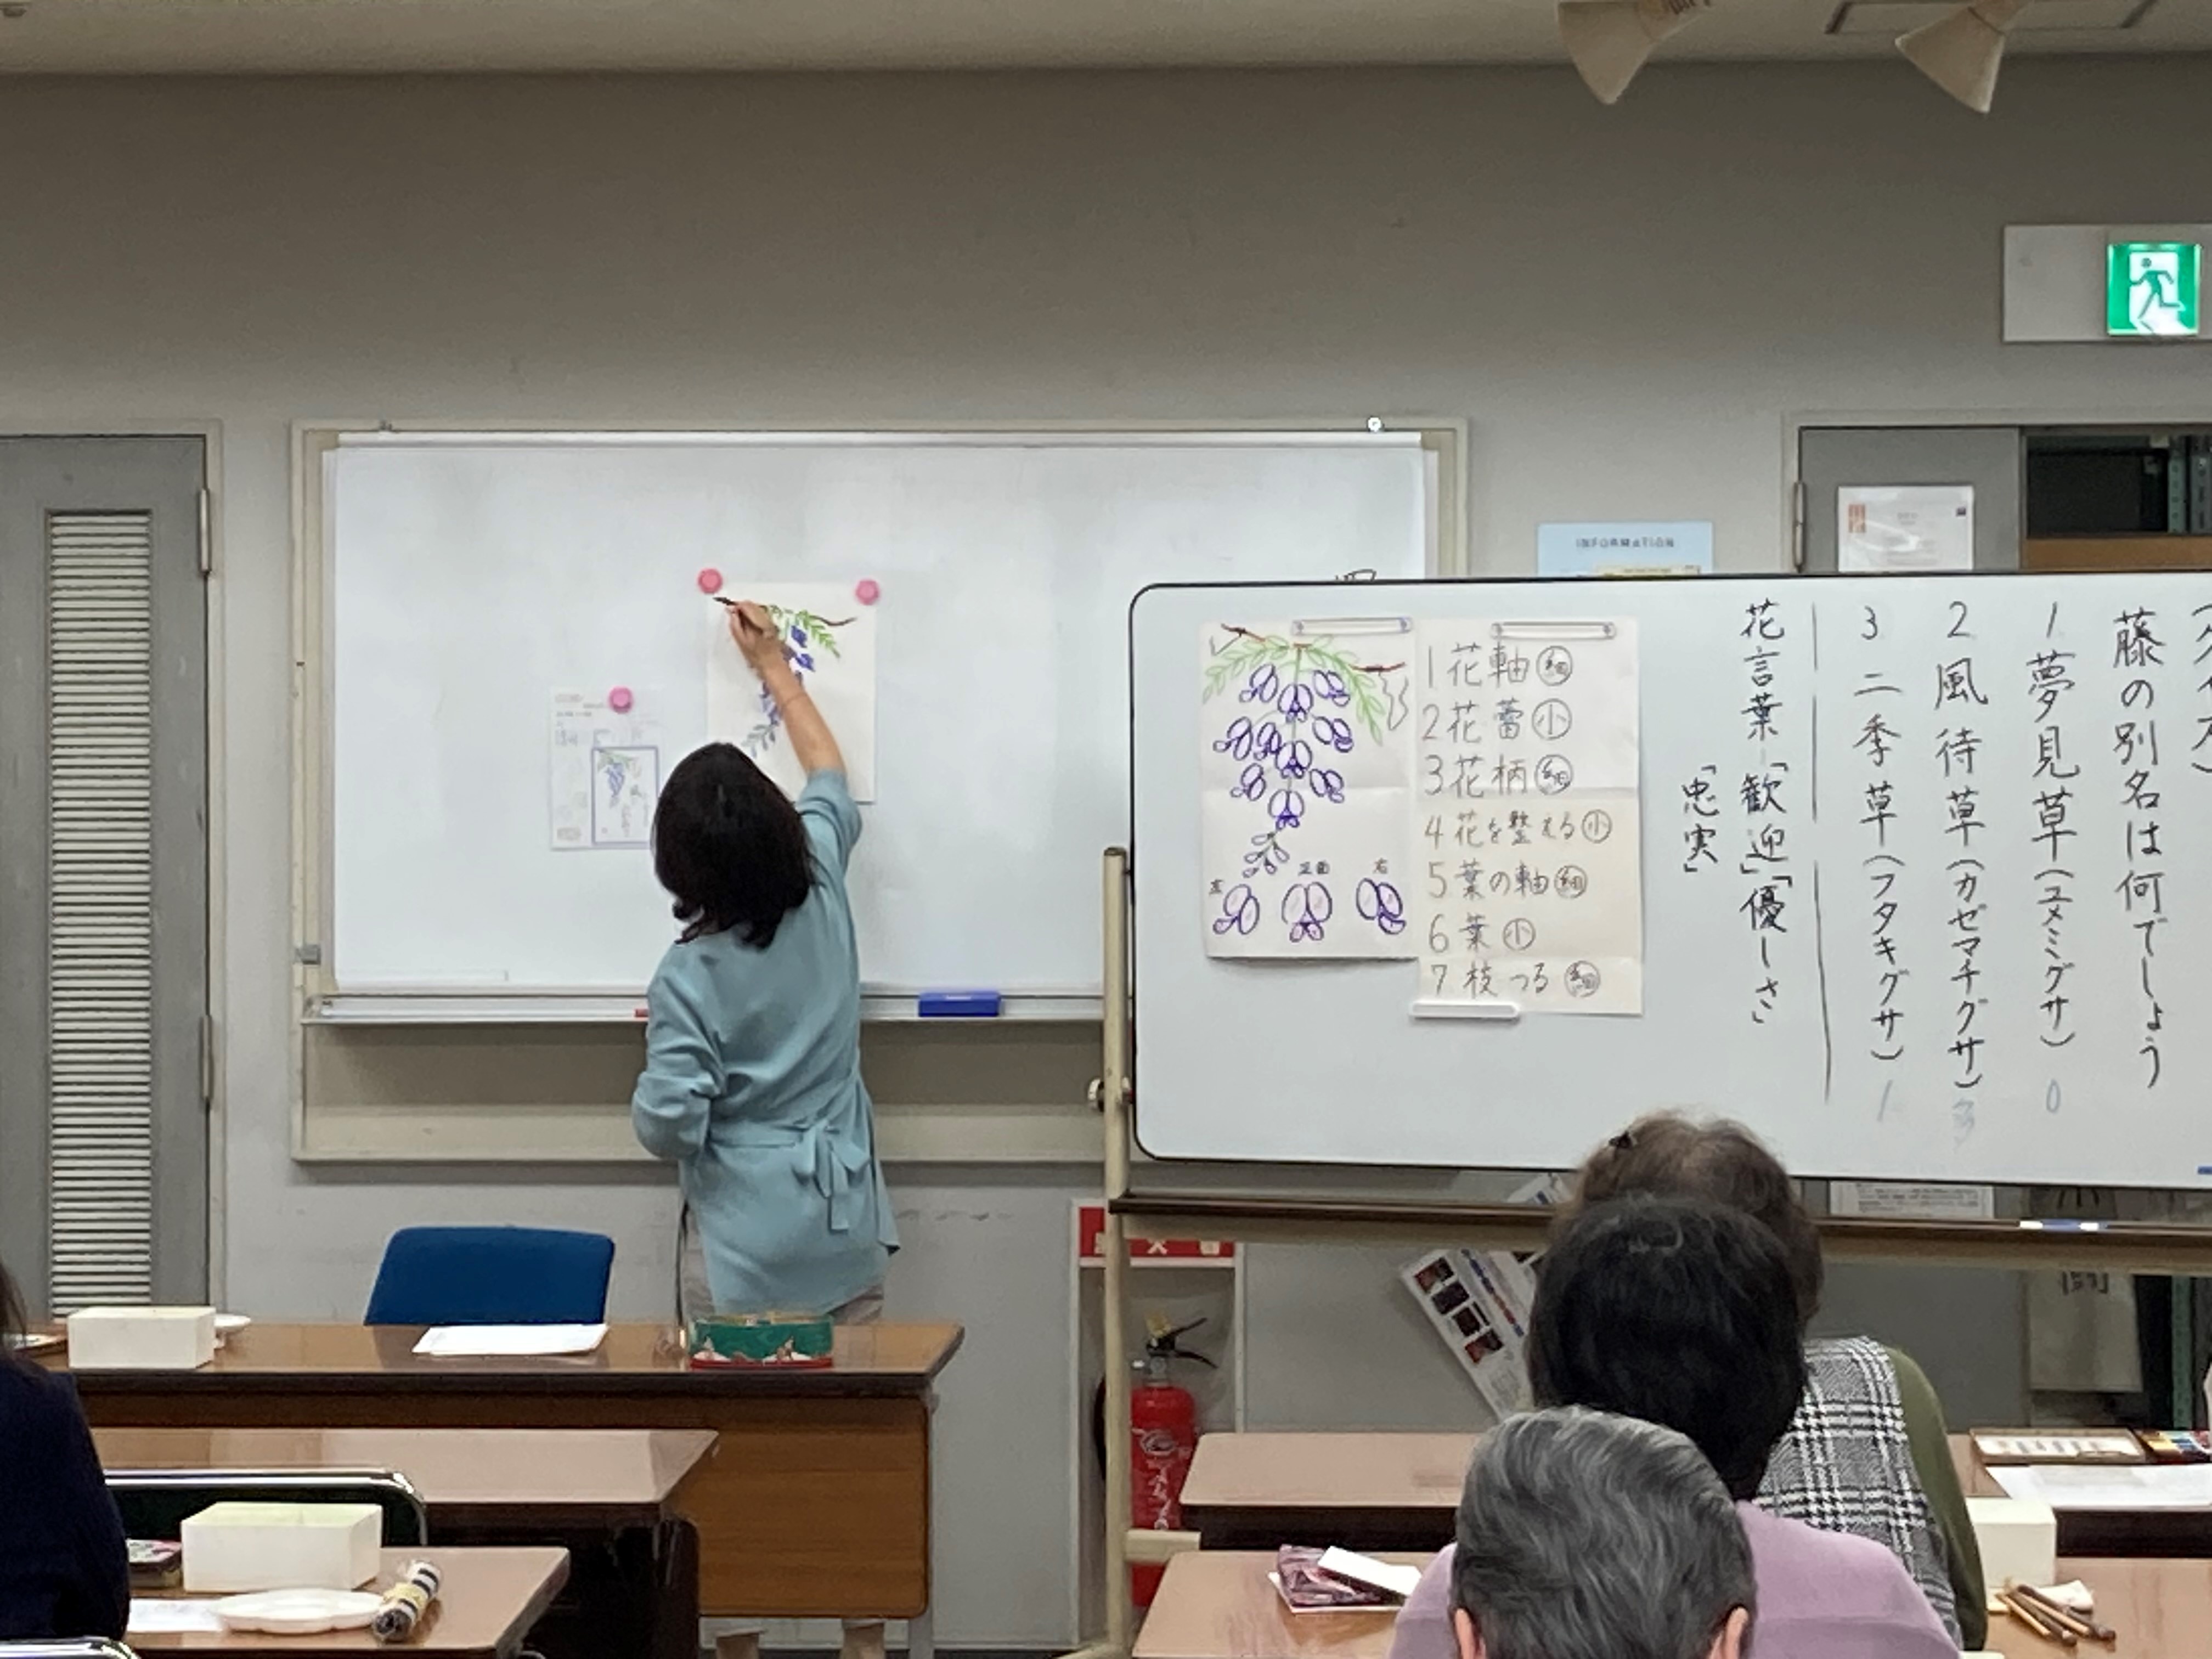 INFORMATION
藤の別名は何でしょう
1 夢見草(ユメミグサ) 0
2 風待草(カゼマチグサ) 3
3 二季草(フタキグサ) 1
花言葉「歓迎」「優しさ」
「忠実」
1 花軸 細
2 花蕾 小
3 花柄 細
4 花を整える 小
5 葉の軸 細
6 葉 小
7 枝 つる 細
左 正面 右